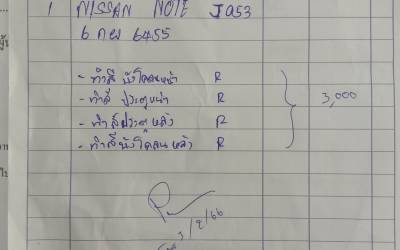 1 NISSAN NOTE J053
6 กผ 6455
- ทำสี บังโคลนหน้า R
- ทำสี ประตูหน้า R
- ทำสีประตูหลัง R
- ทำสีบังโคลนหลัง R
3,000
3/2/66